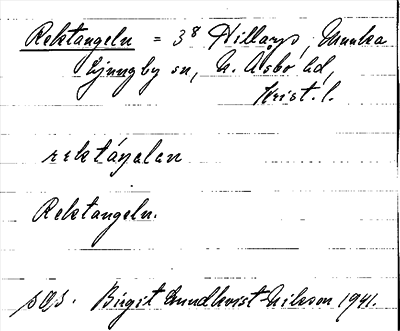 Rektangeln = 3⁸ Hillarp, Munka
Ljungby sn, N. Åsbo hd,
Krist. l.
rektáŋələn
Rektangeln.
Birgit Lundkvist-Nilsson 1941.